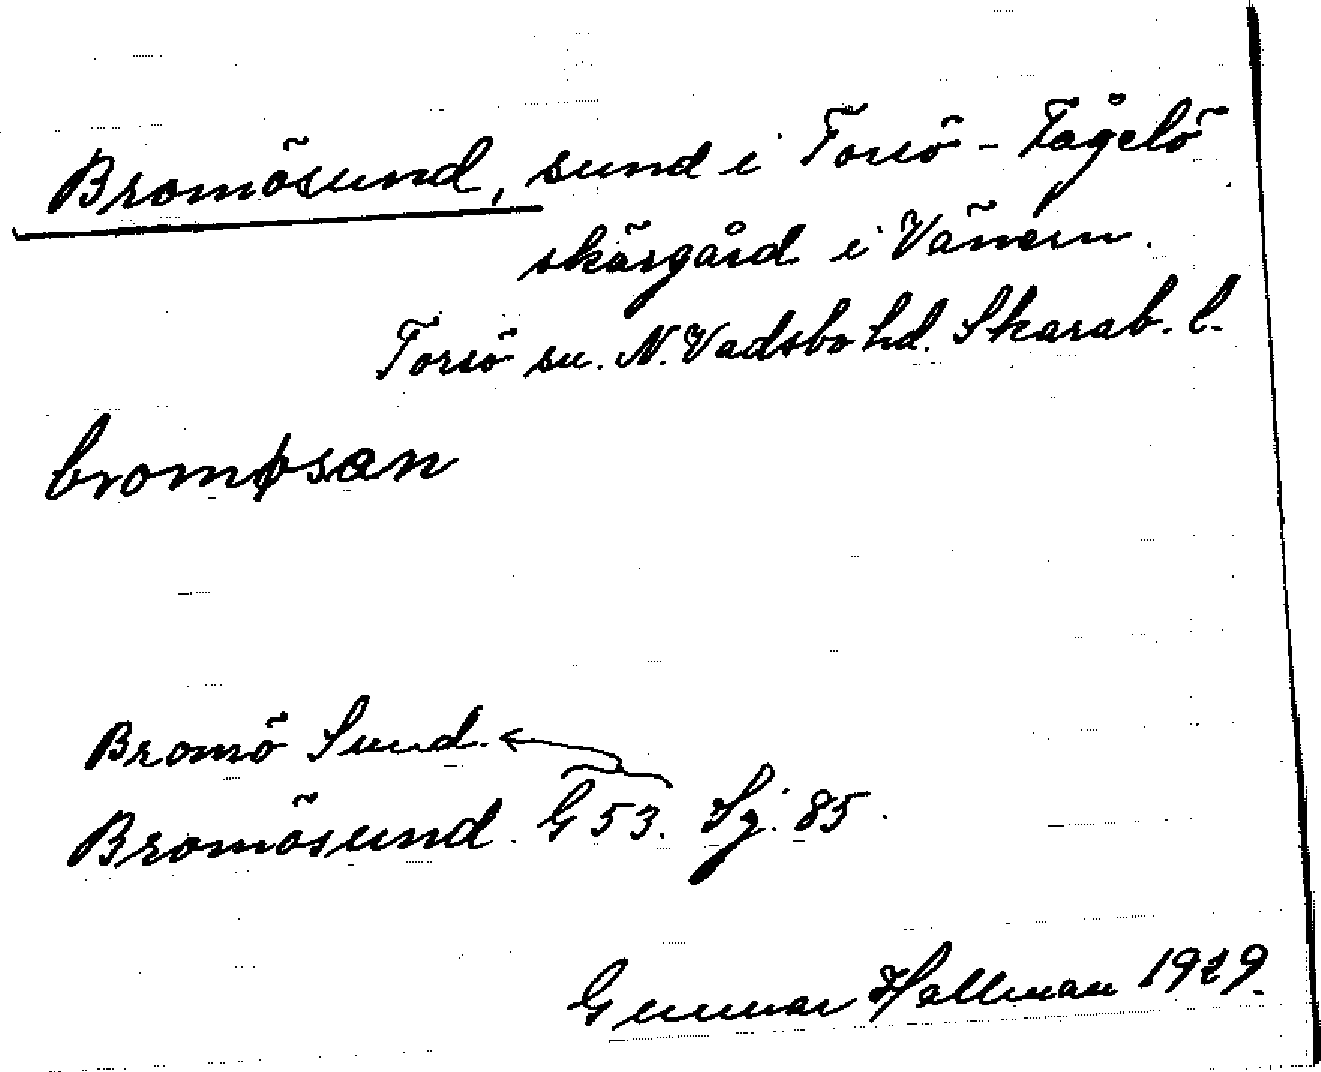 Bromösund, sund i Torsö - Fågelö
skärgård i Vänern.
Torsö sn. N. Vadsbo hd. Skarab. l.
bromøsan
Bromö Sund.
Bromösund. G 53. Sj. 85.
Gunnar Hallman 1929.